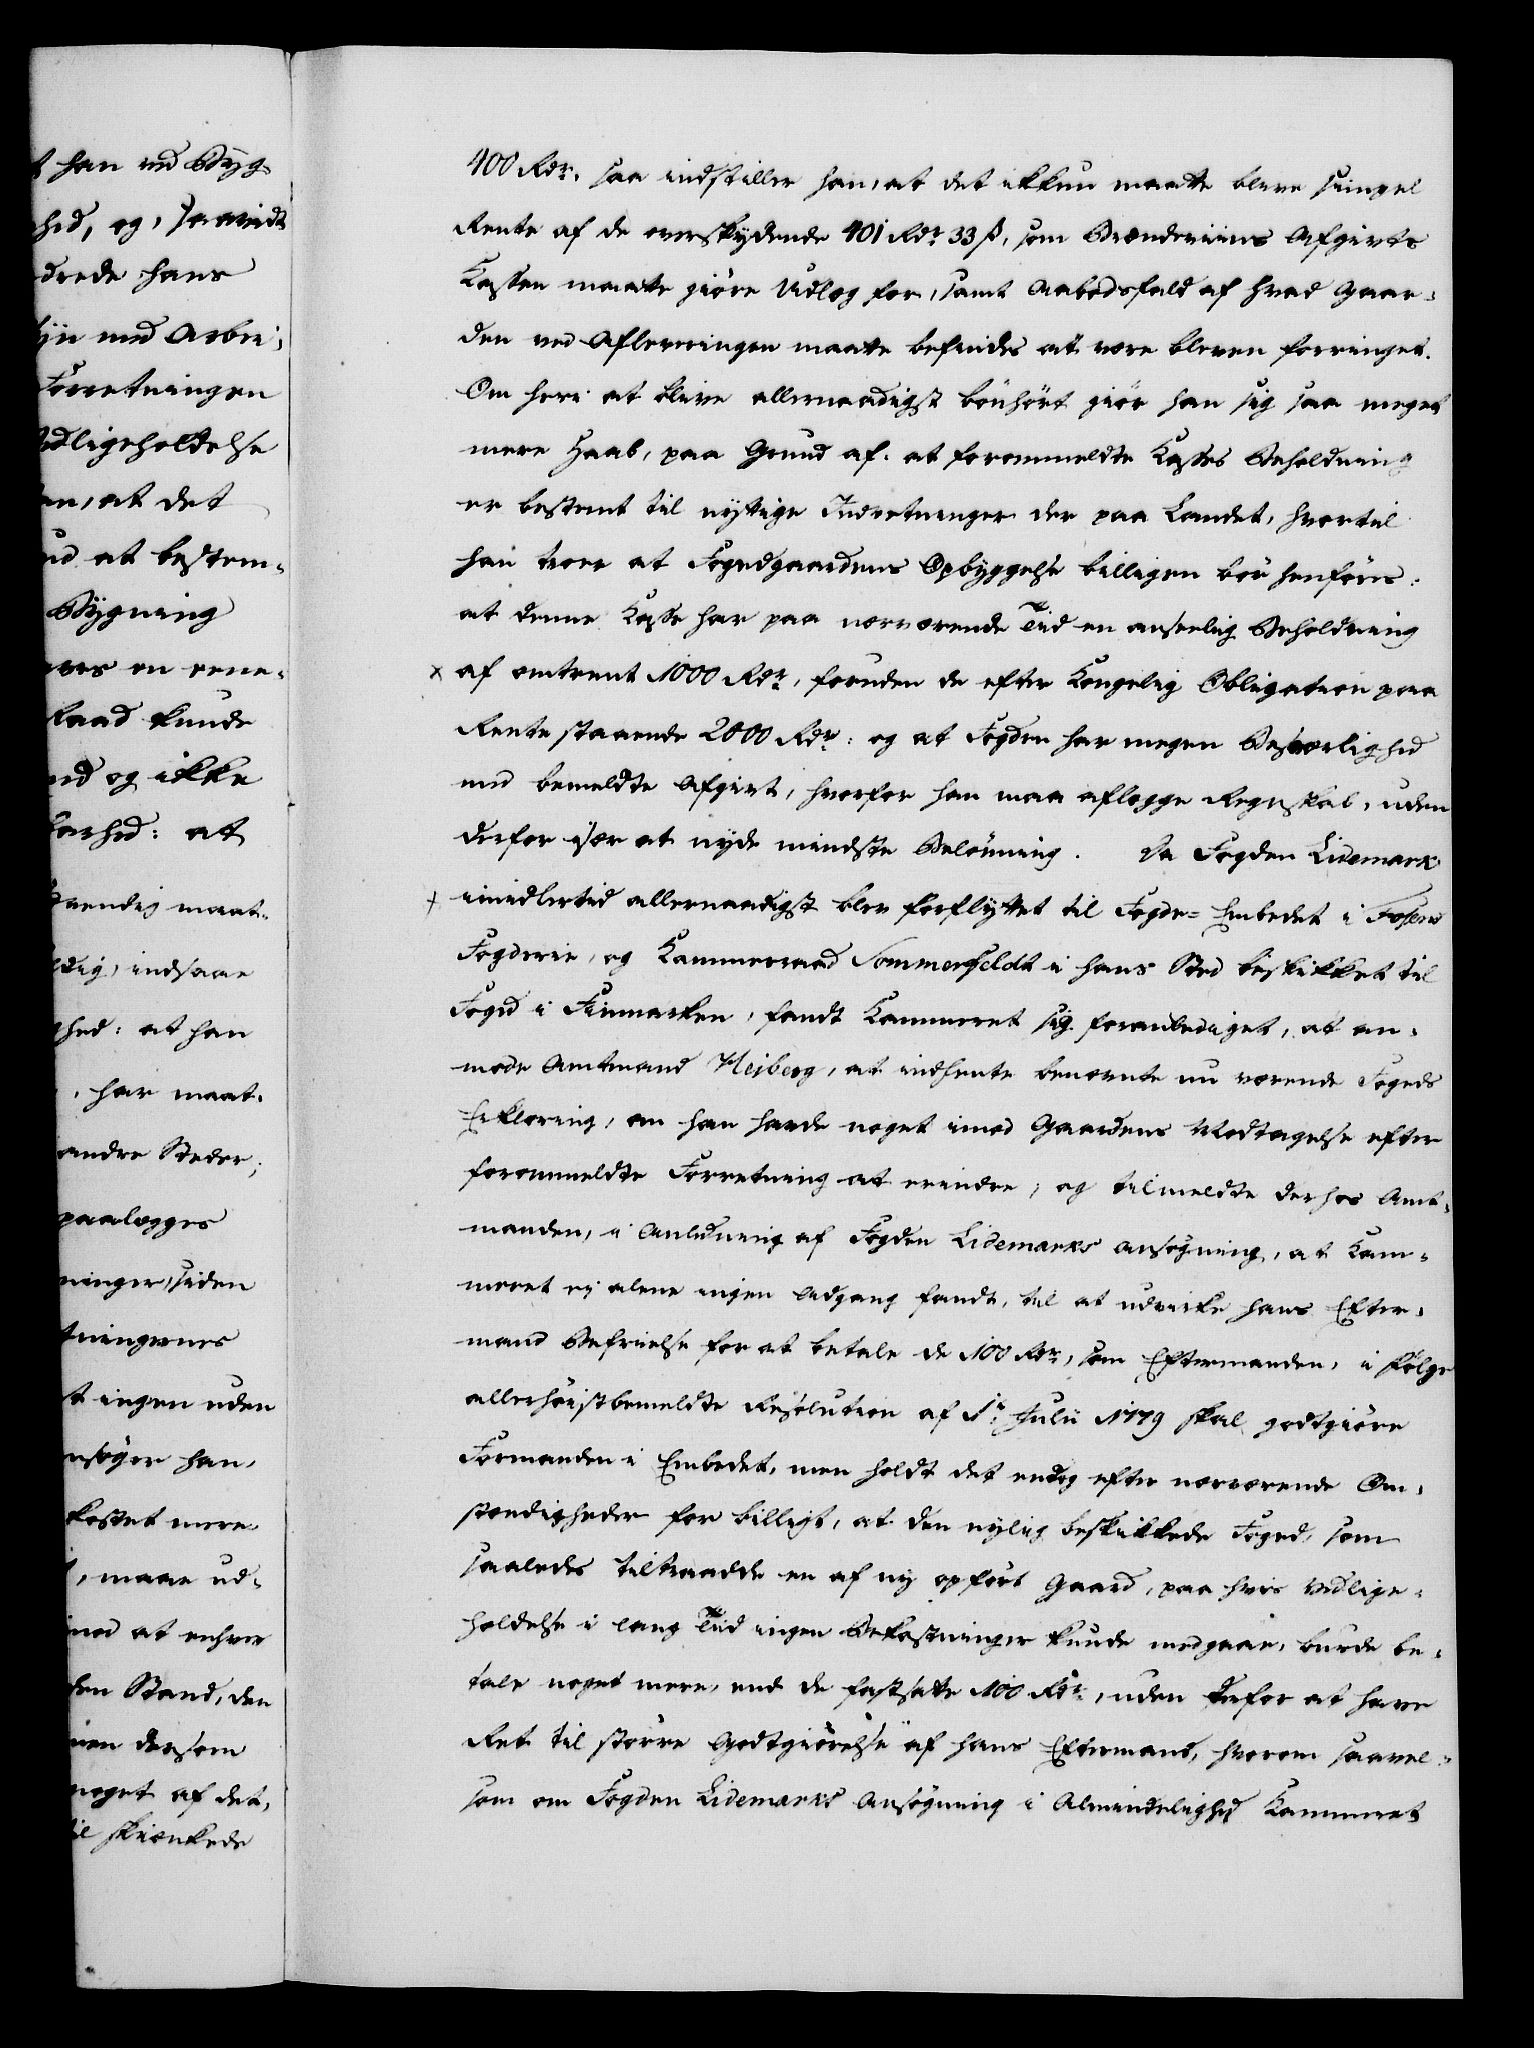 han ved Byg-
hed, og, saavidt
drede hans
med Arbei-
Forretningen
edligeholdelse
an, at det
ud at bestem-
Bygning
en eene-
Raad kunde
ed og ikke
barhed: at
vendig maat-
indsaae
ghed: at han
, har maat-
andre Steder,
paalægges
ninger, siden
tningernes
t ingen uden
nsøger han,
kostet mere
, maae ud-
mod at enhver
den Stand, den
men dersom
noget af det,
til skienkede
400 Rdr. saa indstiller han, at det ikkun maatte blive svinget
Rente af de overskydende 401 Rdr 33 ß, som Brændeviins Afgivts
Kassen maatte giöre Udlæg for, samt Aabodsfald af hvad Gaar-
den ved Afleveringen maatte befindes at være bleven forringet.
Om heri at blive allernaadigst bönhört giör han sig saa meget
mere Haab, paa Grund af: at forommeldte Kasses Beholdning
er bestemt til nyttige Indretninger der paa Landet, hvortil
han troer at Fogedgaardens Opbyggelse billigen bör henföres:
at denne Kasse har paa nærværende Tiid en anseelig Beholdning
x af omtrent 1000 Rdr, foruden de efter Kongelig Obligation paa
Rente staaende 2000 Rdr: og at Fogden har megen Besværlighed
med bemeldte Afgivt, hvorfor han maa aflægge Regnskab, uden
derfor især at nyde mindste Belönning. Da Fogden Lidemark
x imidlertid allernaadigst blev forflyttet til Fogde-Embedet i Fosens
Fogderie, og Kammerraad Sommerfeldt i hans Sted beskikket til
Foged i Finmarken, fandt Kammeret sig foranlediget, at an-
mode Amtmand Heiberg, at indhente benævnte nu værende Fogeds
Erklæring, om han havde noget imod Gaardens Modtagelse efter
forommeldte Forretning at erindre, og tilmeldte derhos Amt-
manden, i Anledning af Fogden Lidemarks Ansøgning, at Kam-
meret ej alene ingen Adgang fandt, til at udvirke hans Efter-
mand Befrielse for at betale de 100 Rdr, som Eftermanden, i Fölge
allerhöistbemeldte Resolution af 1te Julii 1779 skal godtgiöre
Formanden i Embedet, men holdt det endog efter nærværende Om-
stændigheder for billigt, at den nylig beskikkede Foged, som
saaledes tiltraadde en af ny opfört Gaard, paa hvis Vedlige-
holdelse i lang Tiid ingen Bekostninger kunde medgaae, burde be-
tale noget mere, end de fastsatte 100 Rdr, uden derfor at have
Ret til större Godtgiörelse af hans Eftermand, hvorom saavel-
som om Fogden Lidemarks Ansögning i Almindelighed Kammeret